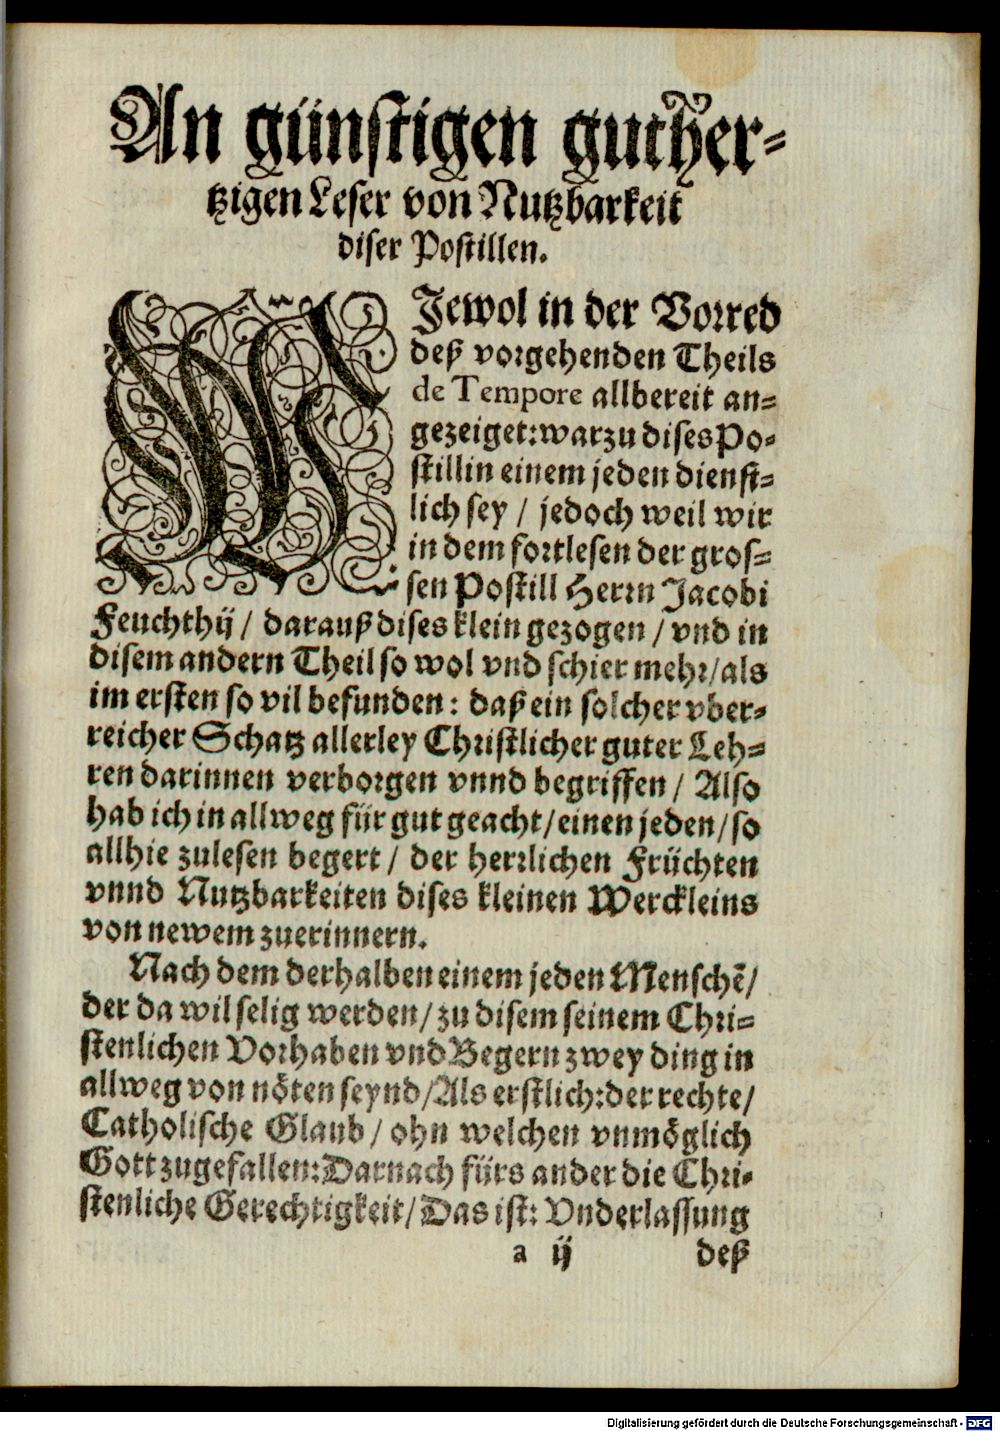 An günstigen guther-
tzigen Leser von Nutzbarkeit
diser Postillen.
WJewol in der Vorred
deß vorgehenden Theils
de Tempore allbereit an-
gezeiget: warzu dises Po-
still in einem jeden dienst-
lich sey / jedoch weil wir
in dem fortlesen der gros-
sen Postill Herrn Jacobi
Feuchthij / darauß dises klein gezogen / vnd in
disem andern Theil so wol vnd schier mehr / als
im ersten so vil befunden: daß ein solcher vber-
reicher Schatz allerley Christlicher guter Leh-
ren darinnen verborgen vnnd begriffen / Also
hab ich in allweg für gut geacht / einen jeden / so
allhie zulesen begert / der herrlichen Früchten
vnnd Nutzbarkeiten dises kleinen Werckleins
von newem zuerinnern.
Nach dem derhalben einem jeden Menschẽ /
der da wil selig werden / zu disem seinem Chri-
stenlichen Vorhaben vnd Begern zwey ding in
allweg von nöten seynd / Als erstlich: der rechte /
Catholische Glaub / ohn welchen vnmöglich
Gott zugefallen: Darnach fürs ander die Chri-
stenliche Gerechtigkeit / Das ist: Vnderlassung
a ij deß
Digitalisierung gefördert durch die Deutsche Forschungsgemeinschaft - DFG